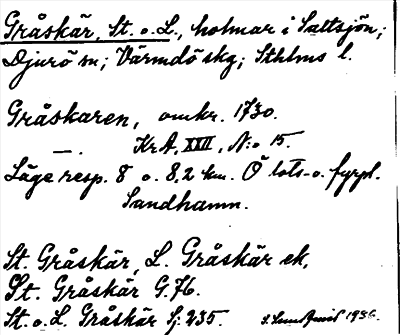 Gråskär, St. o. L., holmar i Saltsjön;
Djurö sn; Värmdö skg; Sthlms l.
Gråskaren, omkr. 1730.
—. KrA, XXII, N:o 15.
Läge resp. 8 o. 8,2 km. Ö lots- o. fyrpl.
Sandhamn.
St. Gråskär, L. Gråskär ek,
St. Gråskär G.76.
St. o. L. Gråskär Sj. 235.
1936.